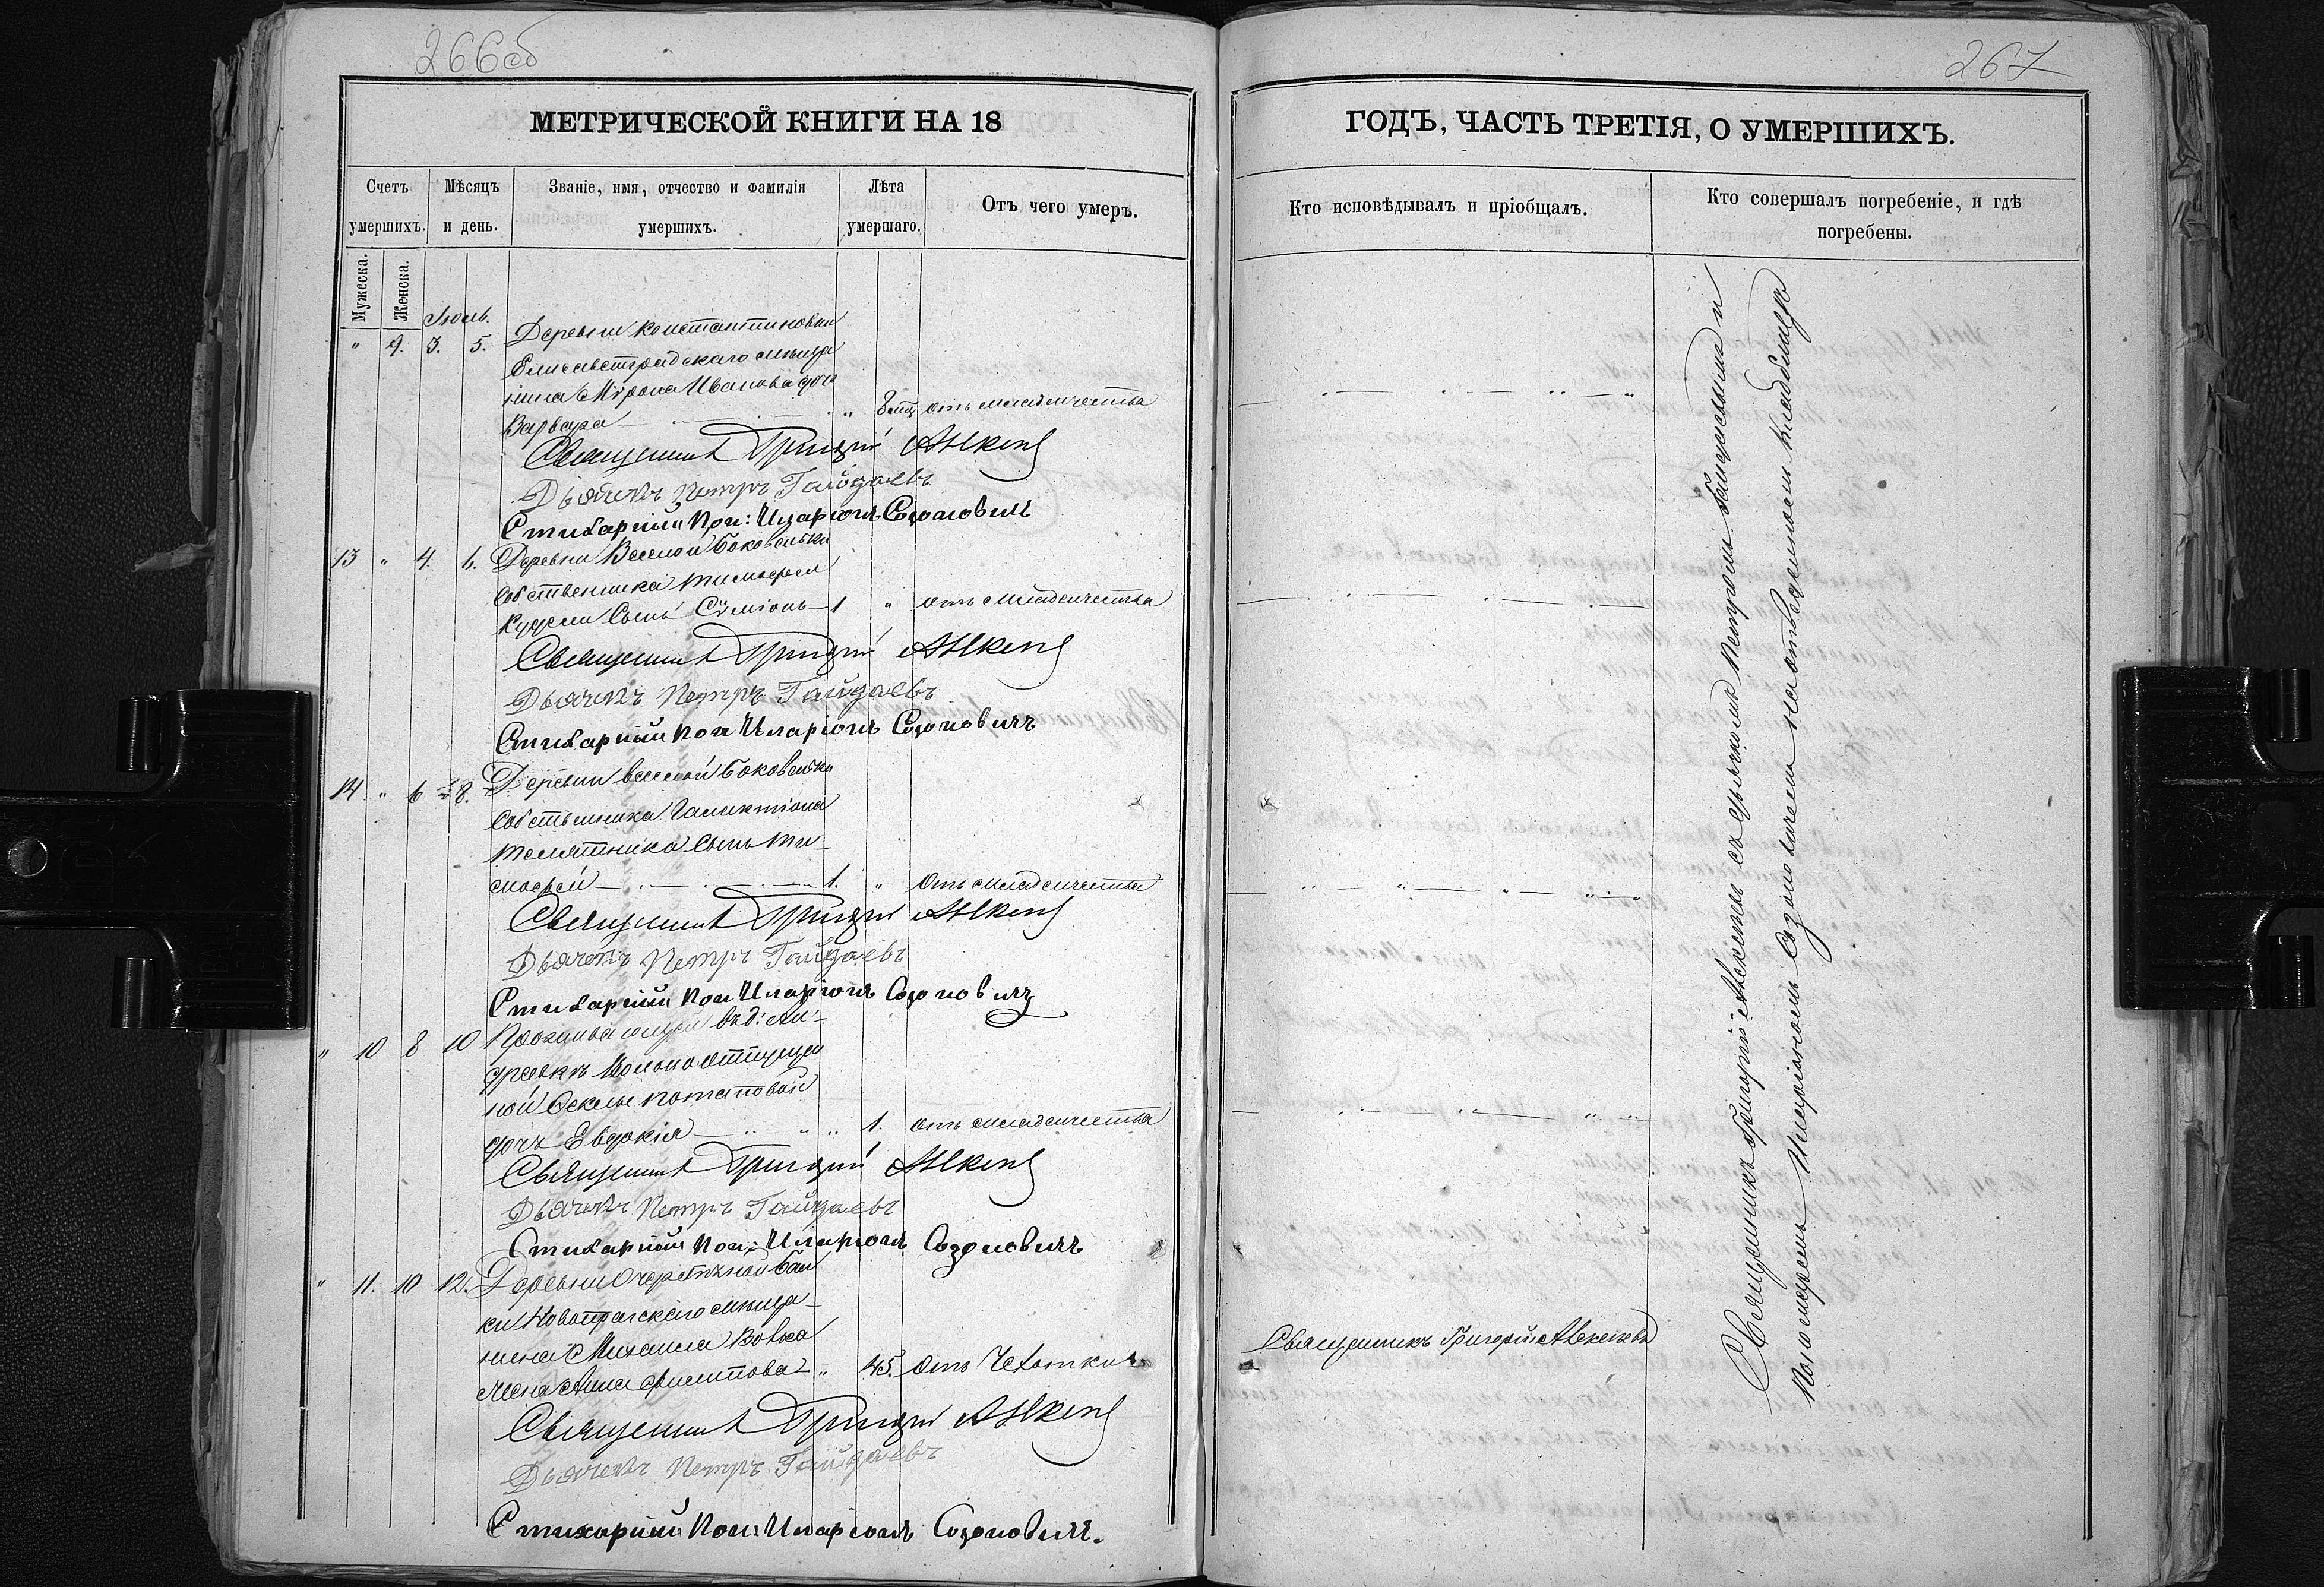 266об
МЕТРИЧЕСКОЙ КНИГИ НА 18
Счетъ умершихъ.
Мѣсяцъ и день.
Званіе, имя, отчество и фамилія умершихъ.
Лѣта умершаго.
Отъ чего умеръ.
Мужеска.
Женска.
Іюль.
" 9. 3. 5. Деревни Константиновки
Елисаветградскаго мѣща
нина Мѵрона Иванова дочь
Варвара " 8 мц отъ младенчества
Священникъ Григорій
Дьячекъ Петръ Гайдаевъ
Стихарный Пон: Иларіонъ Созоновичъ
13 " 4. 6. Деревни Веселой Боковеньки
собственника Тимофея
сынъ Сѵміонъ 1 " отъ младенчества
Священникъ Григорій
Дьячекъ Петръ Гайдаевъ
Стихарный Пон Иларіонъ Созоновичъ
14 " 6 8. Деревни Веселой Боковеньки
собственника Галактіона
Телятника сынъ Ти-
мофей 1. " отъ младенчества
Священникъ Григорій
Дьячекъ Петръ Гайдаевъ
Стихарный Пон Иларіонъ Созоновичъ
" 10 8 10 Проживающей въ д:
Вольноотпущен
ной Феклы Потаповой
дочь Евдокія " " 1. отъ младенчества
Священникъ Григорій
Дьячекъ Петръ Гайдаевъ
Стихарный Пон: Иларіонъ Созоновичъ
" 11. 10 12. Деревни Очеретяной Бал
ки Новопражскаго мѣща-
нина Михаила Вовка
жена Анна Филиппова " 45. отъ Чахотки
Священникъ Григорій
Дьячекъ Петръ Гайдаевъ
Стихарный Пон: Иларіонъ Созоновичъ.
267
ГОДЪ, ЧАСТЬ ТРЕТІЯ, О УМЕРШИХЪ.
Кто исповѣдывалъ и пріобщалъ.
Кто совершалъ погребеніе, и гдѣ погребены.
Священникъ Григорій Алексѣевъ
Священникъ Григорій Алексѣевъ съ дьячкомъ Петромъ Гайдаевымъ и
пономаремъ Иларіономъ Созоновичемъ на отведенномъ кладбищѣ